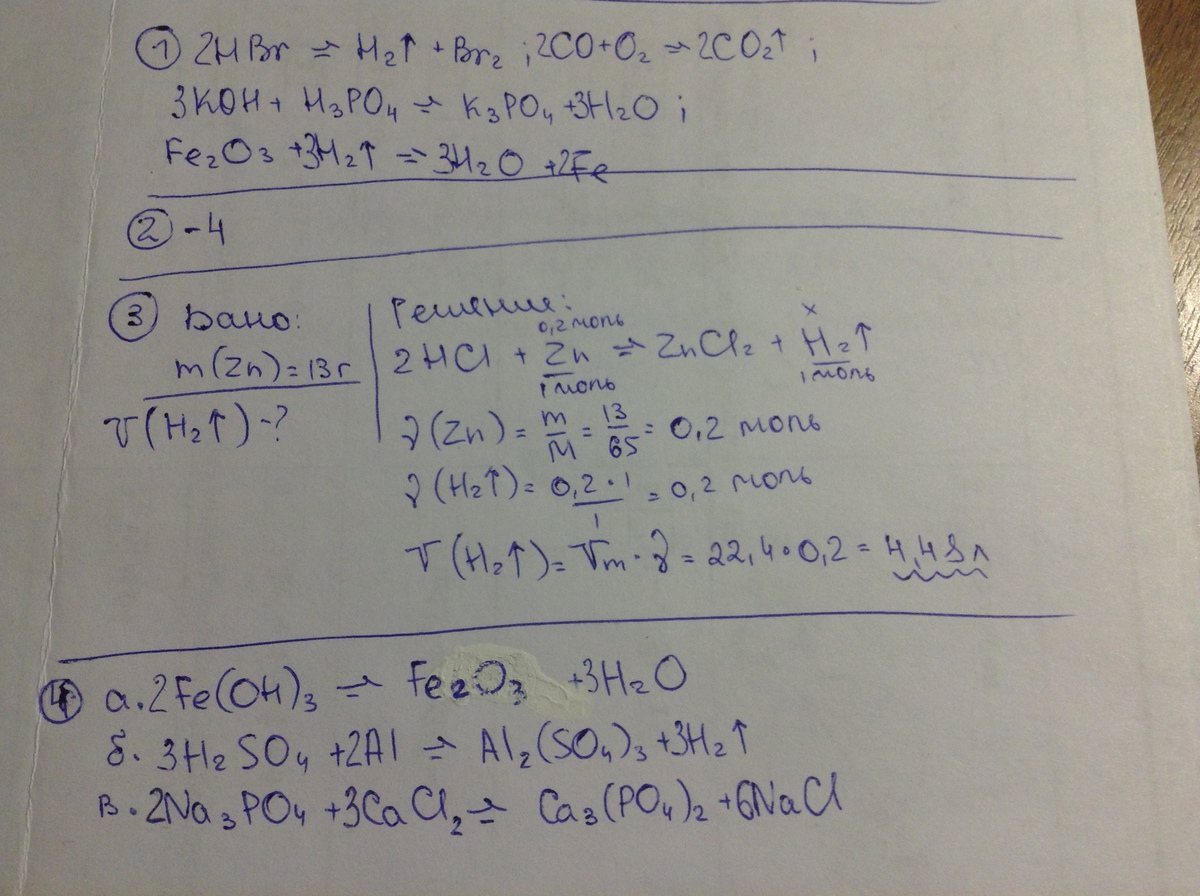 ① 2HBr ⇒ H₂↑ + Br₂ ; 2CO+O₂ ⇒ 2CO₂↑ ;
3KOH + H₃PO₄ ⇒ K₃PO₄ +3H₂O ;
Fe₂O₃ +3H₂↑ ⇒ 3H₂O +2Fe
② -4
③ Дано:
m(Zn)=13г
V(H₂↑)-?
Решение:
0,2 моль x
2HCl + Zn ⇒ ZnCl₂ + H₂↑
1 моль 1 моль
ν(Zn) = m/M = 13/65 = 0,2 моль
ν(H₂↑) = 0,2·1/1 = 0,2 моль
V(H₂↑) = Vm·ν = 22,4·0,2 = 4,48 л
④ а. 2Fe(OH)₃ ⇒ Fe₂O₃ +3H₂O
б. 3H₂SO₄ +2Al ⇒ Al₂(SO₄)₃ +3H₂↑
в. 2Na₃PO₄ +3CaCl₂ ⇒ Ca₃(PO₄)₂ +6NaCl